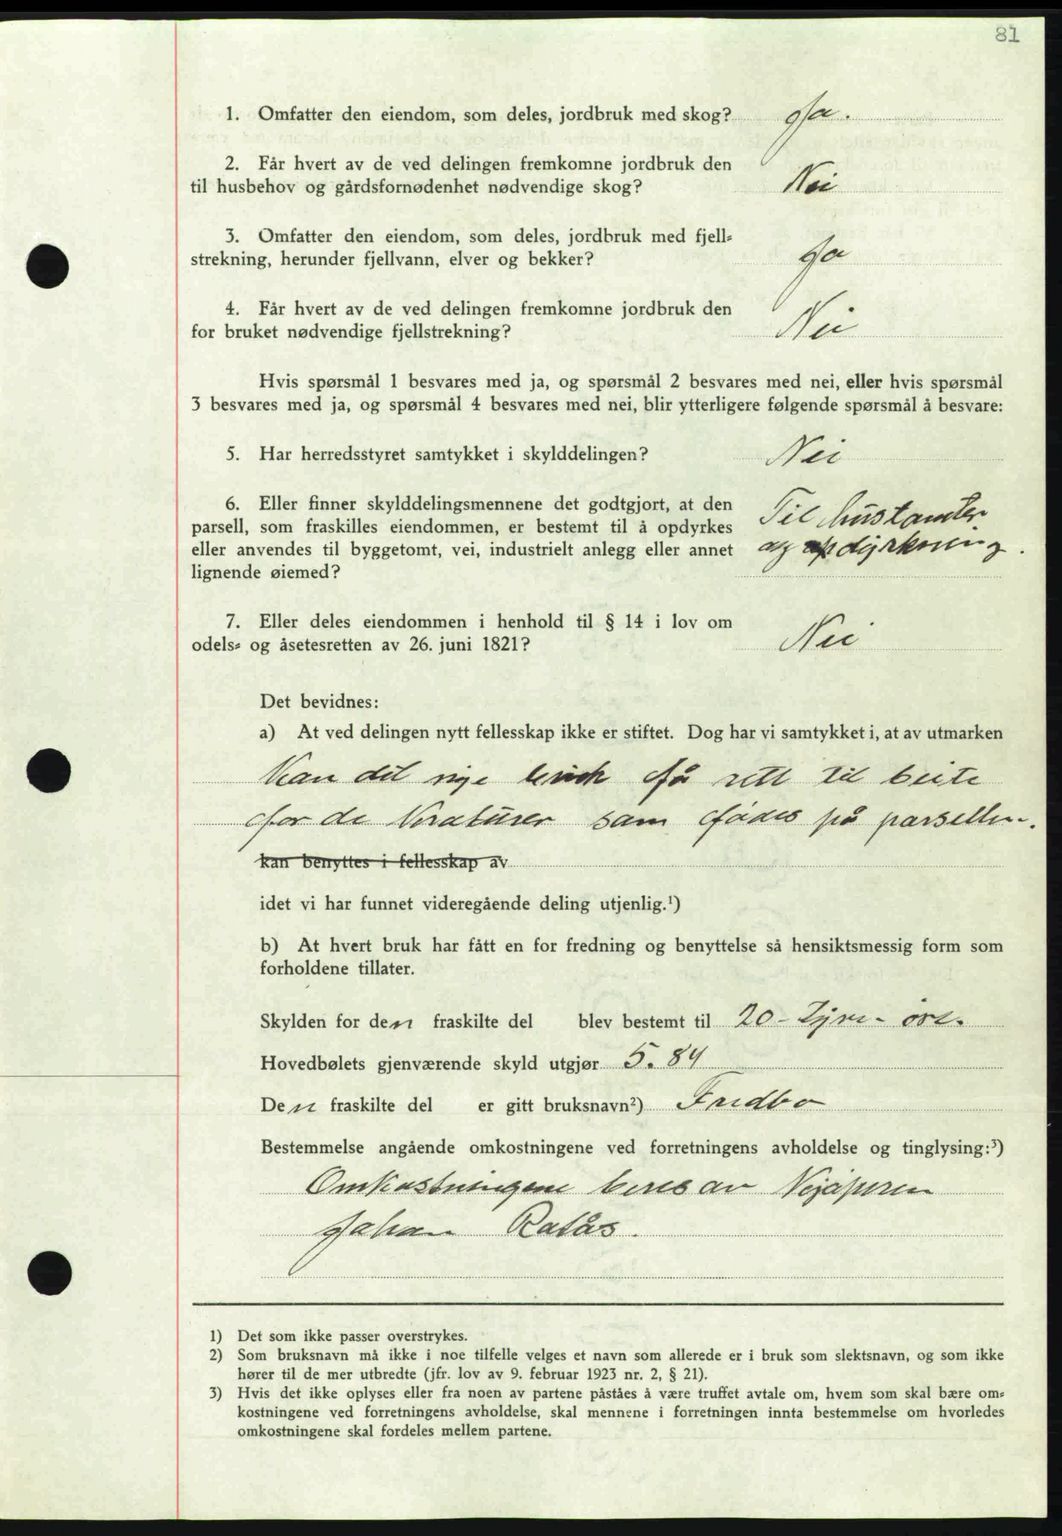 81
1. Omfatter den eiendom, som deles, jordbruk med skog? Ja.
2. Får hvert av de ved delingen fremkomne jordbruk den
til husbehov og gårdsfornødenhet nødvendige skog? Nei
3. Omfatter den eiendom, som deles, jordbruk med fjell-
strekning, herunder fjellvann, elver og bekker? Ja
4. Får hvert av de ved delingen fremkomne jordbruk den
for bruket nødvendige fjellstrekning? Nei
Hvis spørsmål 1 besvares med ja, og spørsmål 2 besvares med nei, eller hvis spørsmål
3 besvares med ja, og spørsmål 4 besvares med nei, blir ytterligere følgende spørsmål å besvare:
5. Har herredsstyret samtykket i skylddelingen? Nei
6. Eller finner skylddelingsmennene det godtgjort, at den
parsell, som fraskilles eiendommen, er bestemt til å opdyrkes
eller anvendes til byggetomt, vei, industrielt anlegg eller annet
lignende øiemed?
Til hustomter
og opdyrkning.
7. Eller deles eiendommen i henhold til § 14 i lov om
odels- og åsetesretten av 26. juni 1821? Nei
Det bevidnes:
a) At ved delingen nytt fellesskap ikke er stiftet. Dog har vi samtykket i, at av utmarken
Kan det nye bruk få rett til beite
for de Kreaturer som fødes på parsellen.
kan benyttes i fellesskap av
idet vi har funnet videregående deling utjenlig.¹)
b) At hvert bruk har fått en for fredning og benyttelse så hensiktsmessig form som
forholdene tillater.
Skylden for den fraskilte del blev bestemt til 20 - Tyve - øre.
Hovedbølets gjenværende skyld utgjør 5.84
Den fraskilte del er gitt bruksnavn²) Fredbo
Bestemmelse angående omkostningene ved forretningens avholdelse og tinglysing:³)
Omkostningene beres av Kjøperen
Johan Ratås.
1) Det som ikke passer overstrykes.
2) Som bruksnavn må ikke i noe tilfelle velges et navn som allerede er i bruk som slektsnavn, og som ikke
hører til de mer utbredte (jfr. lov av 9. februar 1923 nr. 2, § 21).
3) Hvis det ikke oplyses eller fra noen av partene påståes å være truffet avtale om, hvem som skal bære om-
kostningene ved forretningens avholdelse, skal mennene i forretningen innta bestemmelse om hvorledes
omkostningene skal fordeles mellem partene.